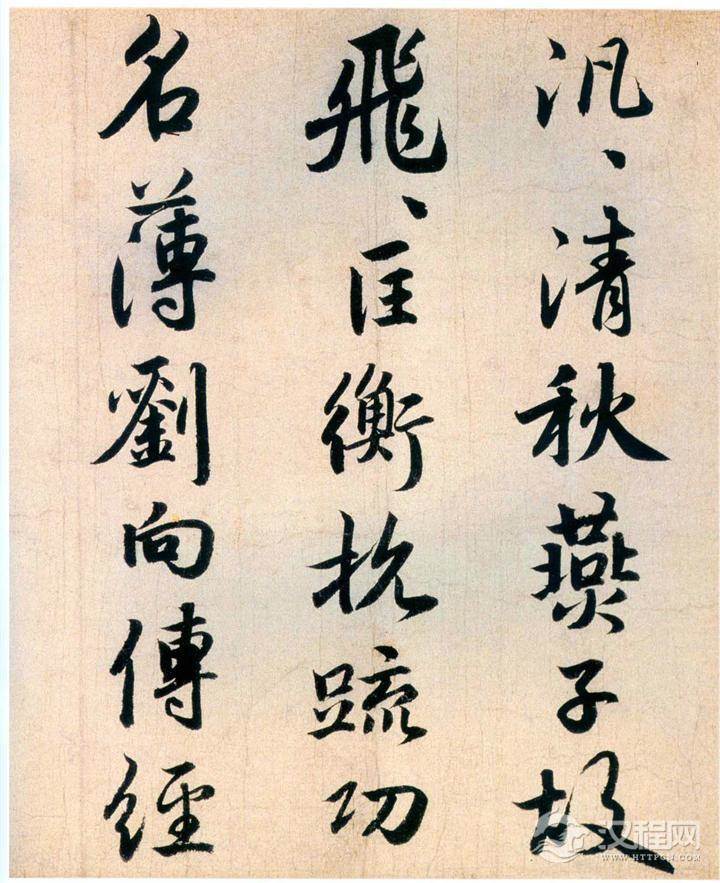 汎、清秋燕子故
飛、匡衡抗疏功
名薄劉向傳經
汉程网
WWW.HTTPCN.COM